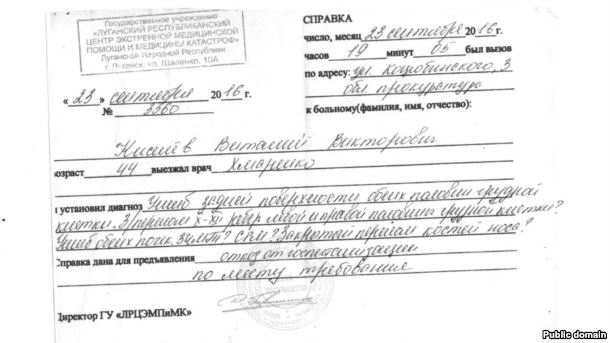 Государственное учреждение
«ЛУГАНСКИЙ РЕСПУБЛИКАНСКИЙ
ЦЕНТР ЭКСТРЕННОЙ МЕДИЦИНСКОЙ
ПОМОЩИ И МЕДИЦИНЫ КАТАСТРОФ»
Луганской Народной Республики
г. Луганск, ул. 10А
« 23 » сентября 2016 г.
№ 3360
СПРАВКА
число, месяц 23 сентября 2016 г.
часов 19 минут 05 был вызов
по адресу: ул. Коцюбинского, 3
прокуратура
к больному(фамилия, имя, отчество):
Киселёв Виталий Викторович
возраст 44 выезжал врач Хмаренко
установил диагноз Ушиб задней поверхности обеих половин грудной
клетки. З/перелом X-XII ребер левой и правой половины грудной клетки?
Ушиб обеих почек. ЗЧМТ? СГМ? Закрытый перелом костей носа?
Справка дана для предъявления отказ от госпитализации
по месту требования
Директор ГУ «ЛРЦЭМПиМК»
Public domain